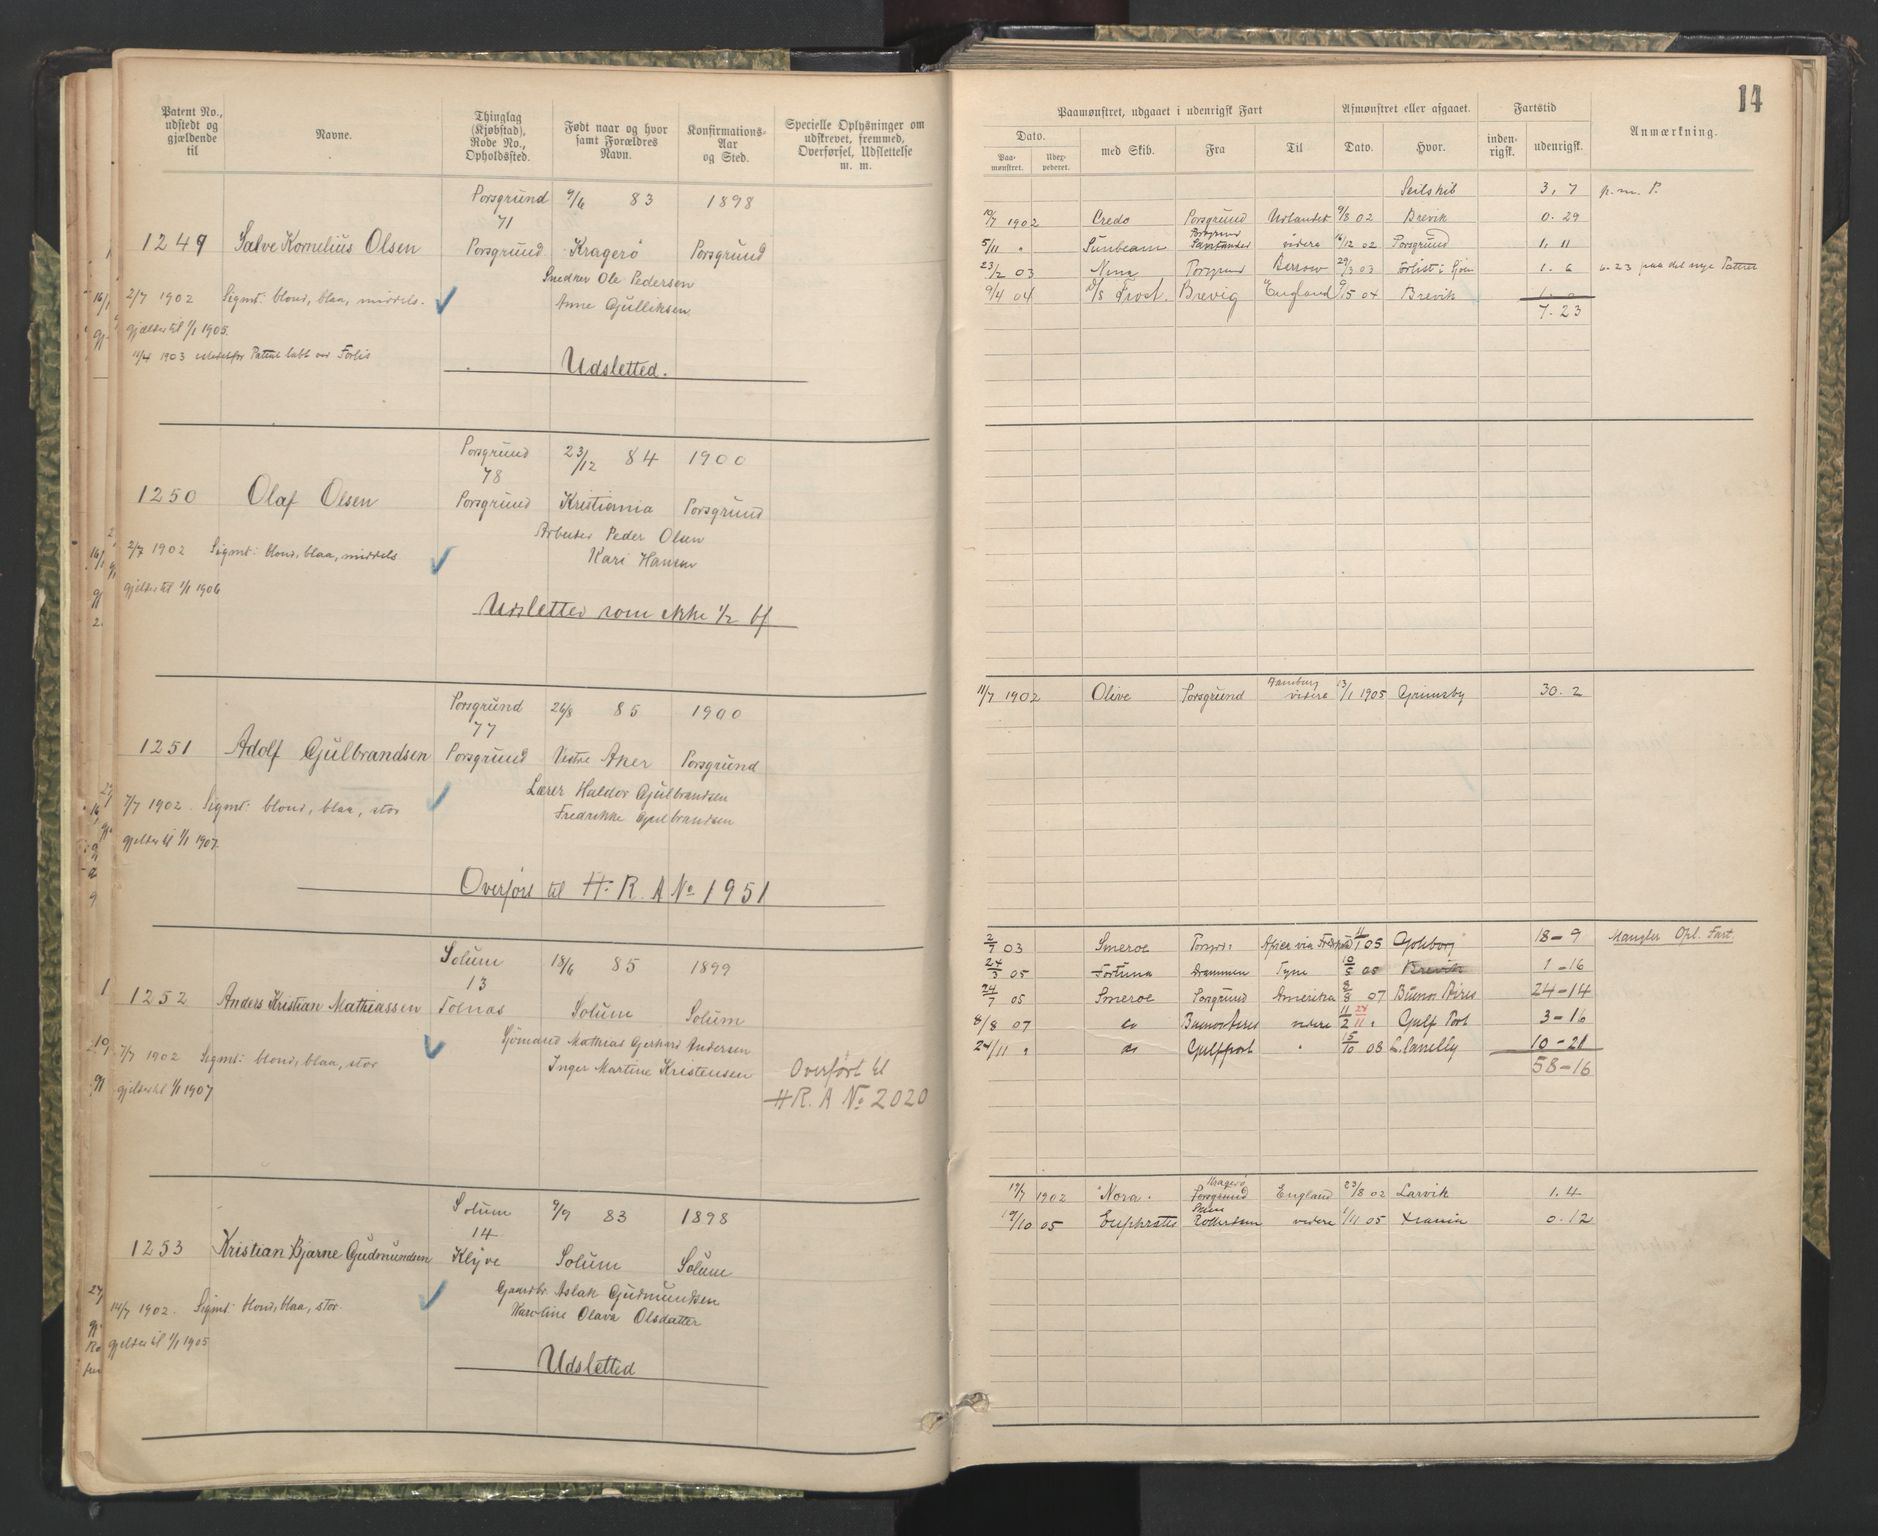 Patent No., udstedt og gjældende til
Navne.
Thinglag (Kjøbstad), Rode No., Opholdssted.
Født naar og hvor samt Forældres Navn.
Konfirmations-Aar og Sted.
Specielle Oplysninger om udskrevet, fremmed, Overførsel, Udslettelse m. m.
Porsgrund 9/6 83 1898
71
1249 Salve Kornelius Olsen Porsgrund Kragerø Porsgrund
Snedker Ole Pedersen
2/7 1902 Sigmt: blond, blaa, middels.
Anne Gulliksen
gjælder til 1/1 1905.
11/4 1903 Patent tabt ved Forlis
Udsletted.
Porsgrund 23/12 84 1900
78
1250 Olaf Olsen Porsgrund Kristiania Porsgrund
Arbeider Peder Olsen
2/7 1902 Sigmt: blond, blaa, middels
Kari Hansen
gjelder til 1/1 1906
Udsletted som ikke 1/2 bf
Porsgrund 26/8 85 1900
77
1251 Adolf Gulbrandsen Porsgrund Vestre Aker Porsgrund
Lærer Haldor Gulbrandsen
7/7 1902. Sigmt: blond, blaa, stor
Fredrikke Gulbrandsen
gjelder til 1/1 1907.
Overført til H. R. A No 1951
Solum 18/6 85 1899
13
1252 Anders Kristian Mathiassen Tolnæs Solum Solum
Sjømand Mathias Gerhard Andersen
7/7 1902 Sigmt: blond, blaa, stor
Inger Martine Kristensen
Overført til
gjelder til 1/1 1907
H R. A No 2020
Solum 9/9 83 1898
14
1253 Kristian Bjarne Gudmundsen Klyve Solum Solum
Gaardbr. Aslak Gudmundsen
14/7 1902. Sigmt: blond, blaa, stor.
Karoline Olava Olsdatter
gjelder til 1/1 1905
Udsletted
14
Paamønstret, udgaaet i udenrigsk Fart
Afmønstret eller afgaaet.
Fartstid
Anmærkning.
Dato.
Paa-mønstret.
Udex-pederet.
med Skib.
Fra
Til
Dato.
Hvor.
inden-rigsk.
udenrigsk.
Seilskib 3, 7 p. m. P.
10/7 1902 Credo Porsgrund Udlandet 9/8 02 Brevik 0. 29
Porsgrund
5/11 " Sunbeam Santander videre 16/12 02 Porsgrund 1. 11
23/2 03 Nina Porsgrund Barrow 29/3 03 Forlist i Sjøen 1. 6 1. 23 paa det nye Patent
9/4 04 D/S Frost. Brevig England 9/5 04 Brevik 1. 0
7. 23
Hamburg
11/7 1902 Olive Porsgrund videre 13/1 1905 Grimsby 30. 2
2/7 03 Smeroe Porsgrd: 11/1 05 Goteborg 18-9 Mangler Opl. Fart.
24/3 05 Fortuna Drammen Tyne 10/5 05 Brevik 1-16
24/7 05 Smeroe Porsgrund Amerika 8/8 07 Buenos Aires 24-14
8/8 07 do Buenos Aires videre 11/2 24/11 " Gulf Port 3-16
24/11 " do Gulfport " 15/10 08 Lanelly 10-21
58-16
Kragerø
17/7 1902 "Nora". Porsgrund England 23/8 02 Larvik 1. 4
19/10 05 Euphrates Rotterdam videre 1/11 05 Xtiania 0. 12